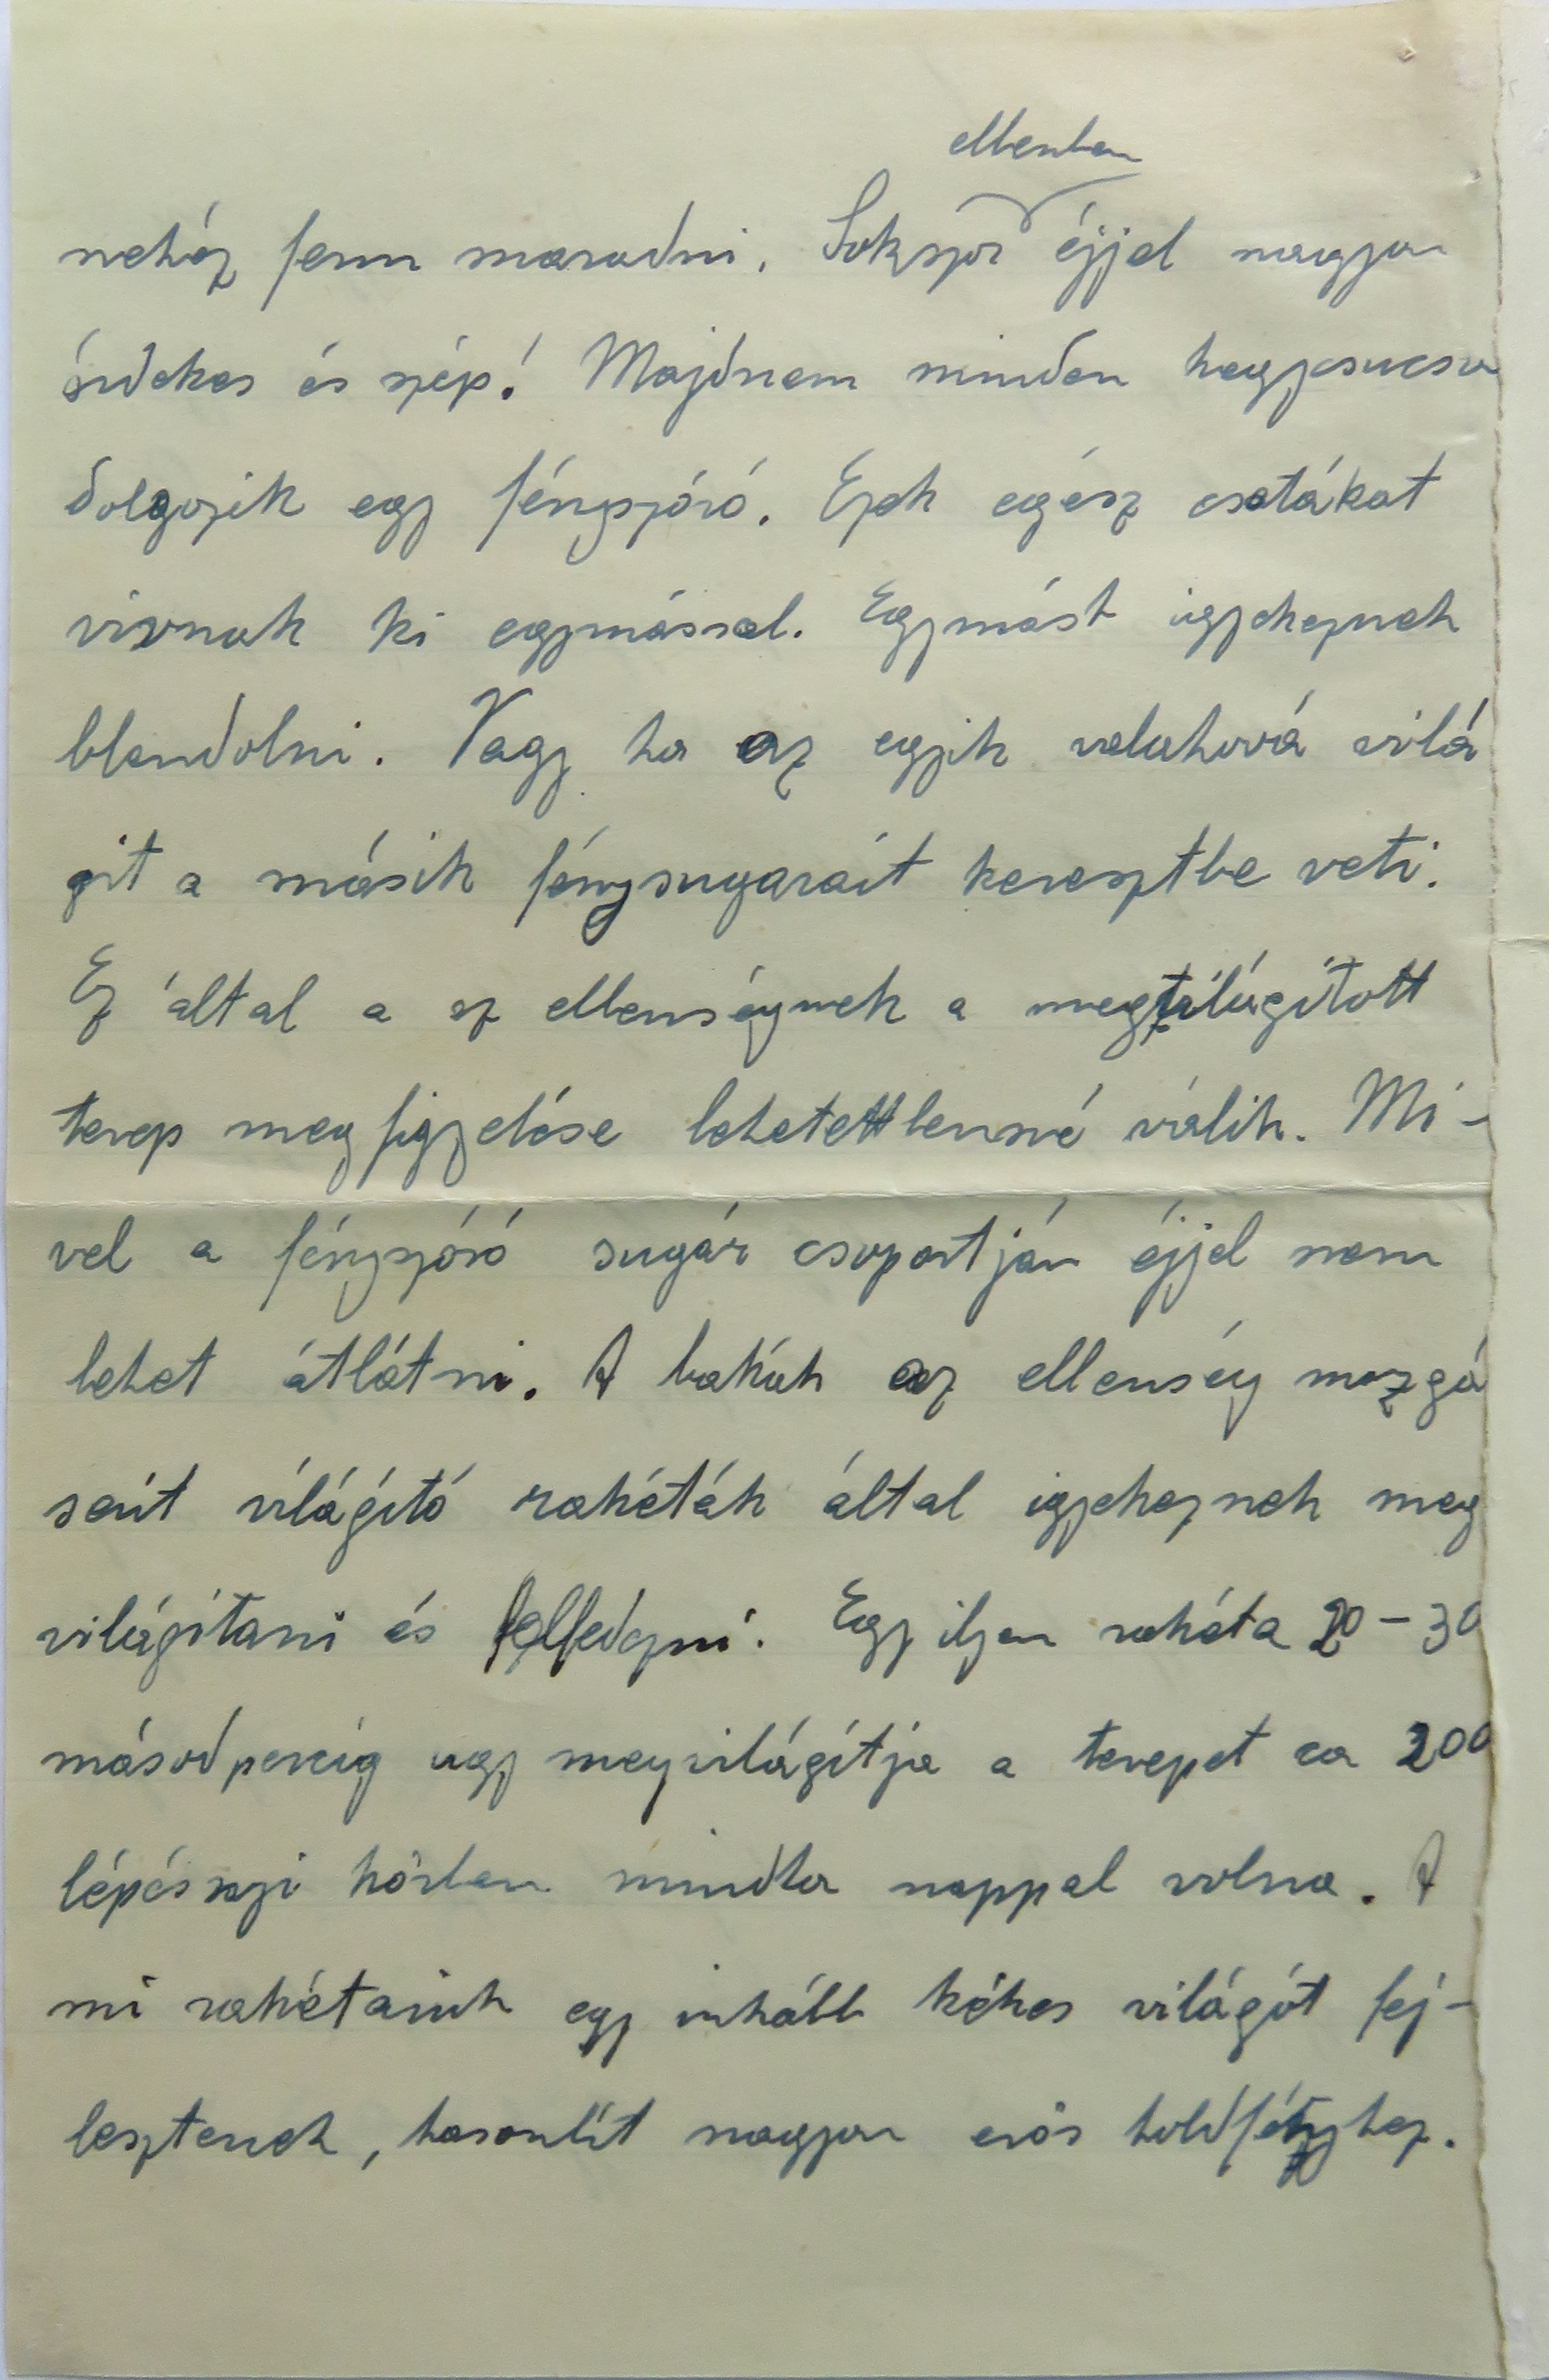 ellenben
nehéz fenn maradni. Sokszor éjjel nagyon
érdekes és szép! Majdnem minden hegycsucson
dolgozik egy fényszóró. Ezek egész csatákat
vivnak ki egymással. Egymást igyekeznek
blendolni. Vagy ha az egyik valahová vilá
git a másik fénysugarait keresztbe veti.
Ez által a az ellenségnek a megvilágított
terep megfigyelése lehetettlenné válik. Mi-
vel a fényszóró sugár csoportján éjjel nem
lehet átlátni. A bakák az ellenség mozgá
sait világító rakéták által igyekeznek meg
világítani és felfedezni. Egy ilyen rakéta 20-30
másodpercig ugy megvilágítja a terepet ca 200
lépésnyi körben mindha nappal volna. A
mi rakétaink egy inkább kékes világót fej-
lesztenek, hasonlít nagyon erös holdfényhez.